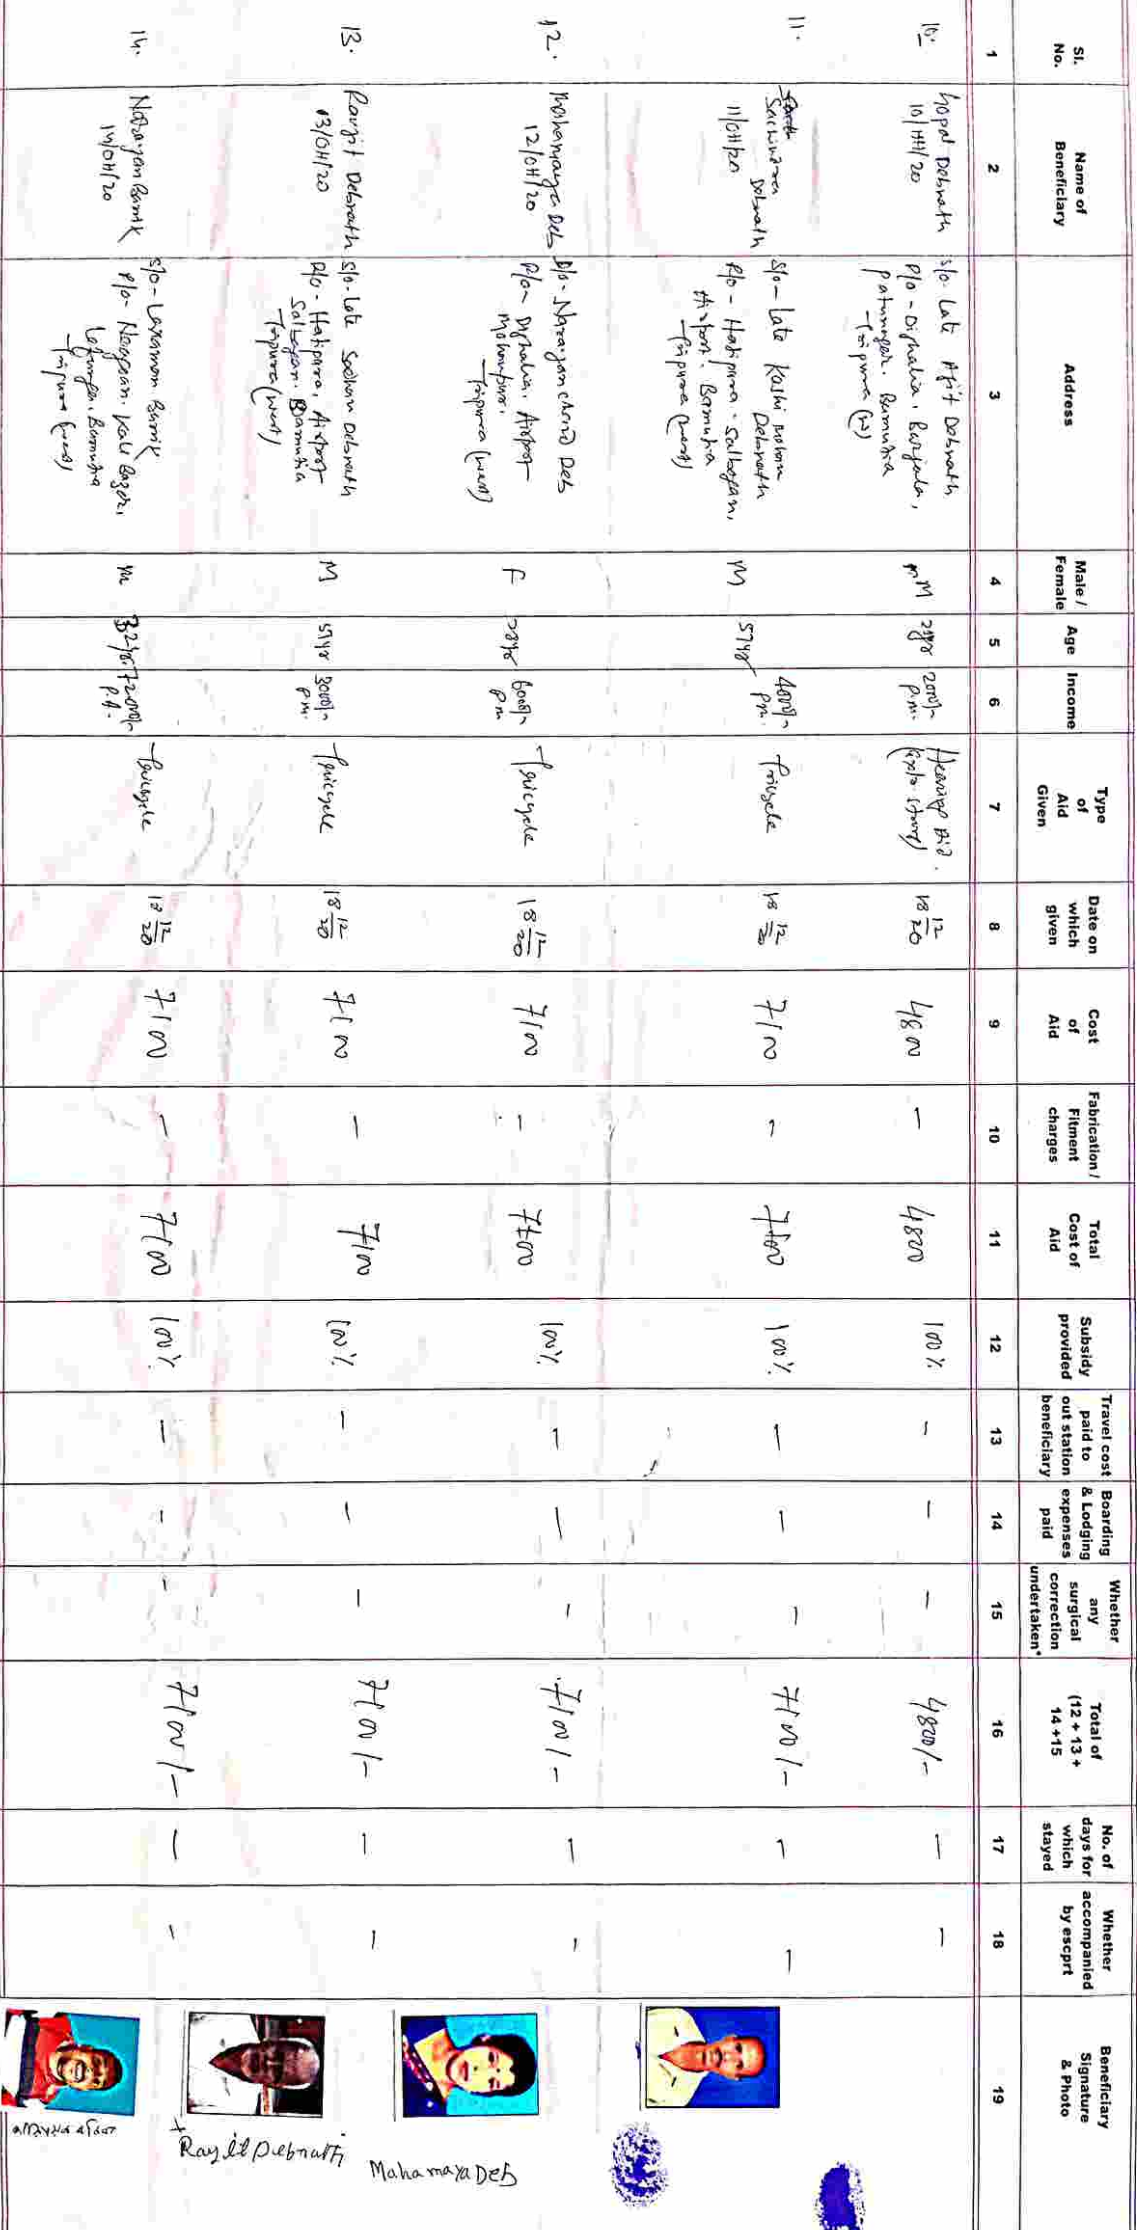 Sl. No.
Name of Beneficiary
Address
Male / Female
Age
Income
Type of Aid Given
Date on which given
Cost of Aid
Fabrication / Fitment charges
Total Cost of Aid
Subsidy provided
Travel cost paid to out station beneficiary
Boarding & Lodging expenses paid
Whether any surgical correction undertaken*
Total of (12 + 13 + 14 +15
No. of days for which stayed
Whether accompanied by escprt
Beneficiary Signature & Photo
1 2 3 4 5 6 7 8 9 10 11 12 13 14 15 16 17 18 19
10.
Gopal Debnath
10/HH/20
S/o- Late Ajit Debnath
R/o - Dighalia, Burjala,
Patunagar. Bamutia
Tripura (W)
M
2000/-
P.m.
Hearing Aid.
18 12/20
4800
–
4800
100%
–
–
–
4800/-
–
–
11.
Sachindra Debnath
11/OH/20
S/o - Late Kashi Mohan
Debnath
R/o - Hatipara. Salbagan,
Airport. Bamutia
Tripura (West)
M
57yr
4000/-
P.m.
Tricycle
18 12/20
7100
–
7100
100%
–
–
–
7100/-
–
–
12.
Mahamaya Deb
12/OH/20
D/o- Narayan Chand Deb
R/o- Dighalia. Airport
Mohanpur.
Tripura (West)
F
6000/-
P.m
Tricycle
18 12/20
7100
–
7100
100%
–
–
–
7100/-
–
–
Mahamaya Deb
13.
Ranjit Debnath
13/OH/20
S/o- Late Sadhan Debnath
R/o - Hatipara, Airport
Salbagan. Bamutia
Tripura (West)
M
57yr
3000/-
P.m.
Tricycle
18 12/20
7100
–
7100
100%
–
–
–
7100/-
–
–
Ranjit Debnath
14.
Narayan Barik
14/OH/20
S/o - Laxaman Barik
R/o- Naogaon. Kali Bazar,
Bamutia
Tripura (West)
M
32yr
Tricycle
18 12/20
7100
–
7100
100%
–
–
–
7100/-
–
–